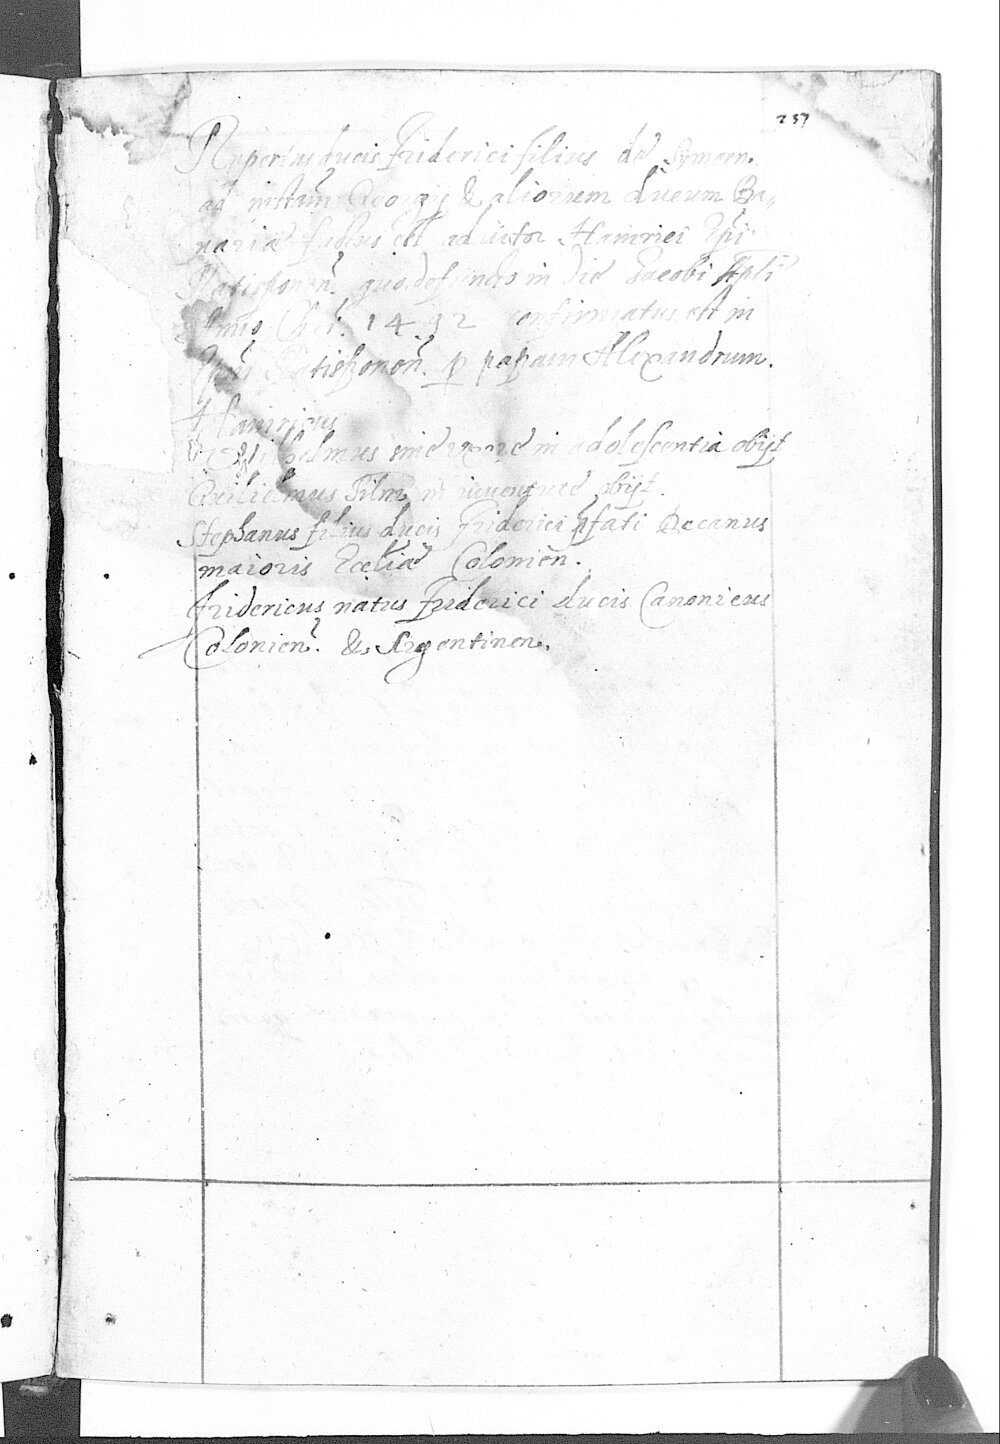 237
Rupertus ducis Friderici filius de Symern.
ad instan̄ Georgij & aliorum ducum Ba„
uariæ factus est adiutor Hainrici Ep̄i
Ratisponen̄. quo defuncto in die Jacobi Apl̄i
Anno Chri. 1492 confirmatus est in
Ep̄um Ratisponen̄. p papam Alexandrum.
Hainricus
Wilhelmus sine in adolescentia obijt
filius in iuuentute obijt.
Stephanus filius ducis Friderici p̄fati Decanus
maioris Ecclīæ Colonien̄.
Fridericus natus Friderici ducis Canonicus
Colonien̄. & Argentinen.